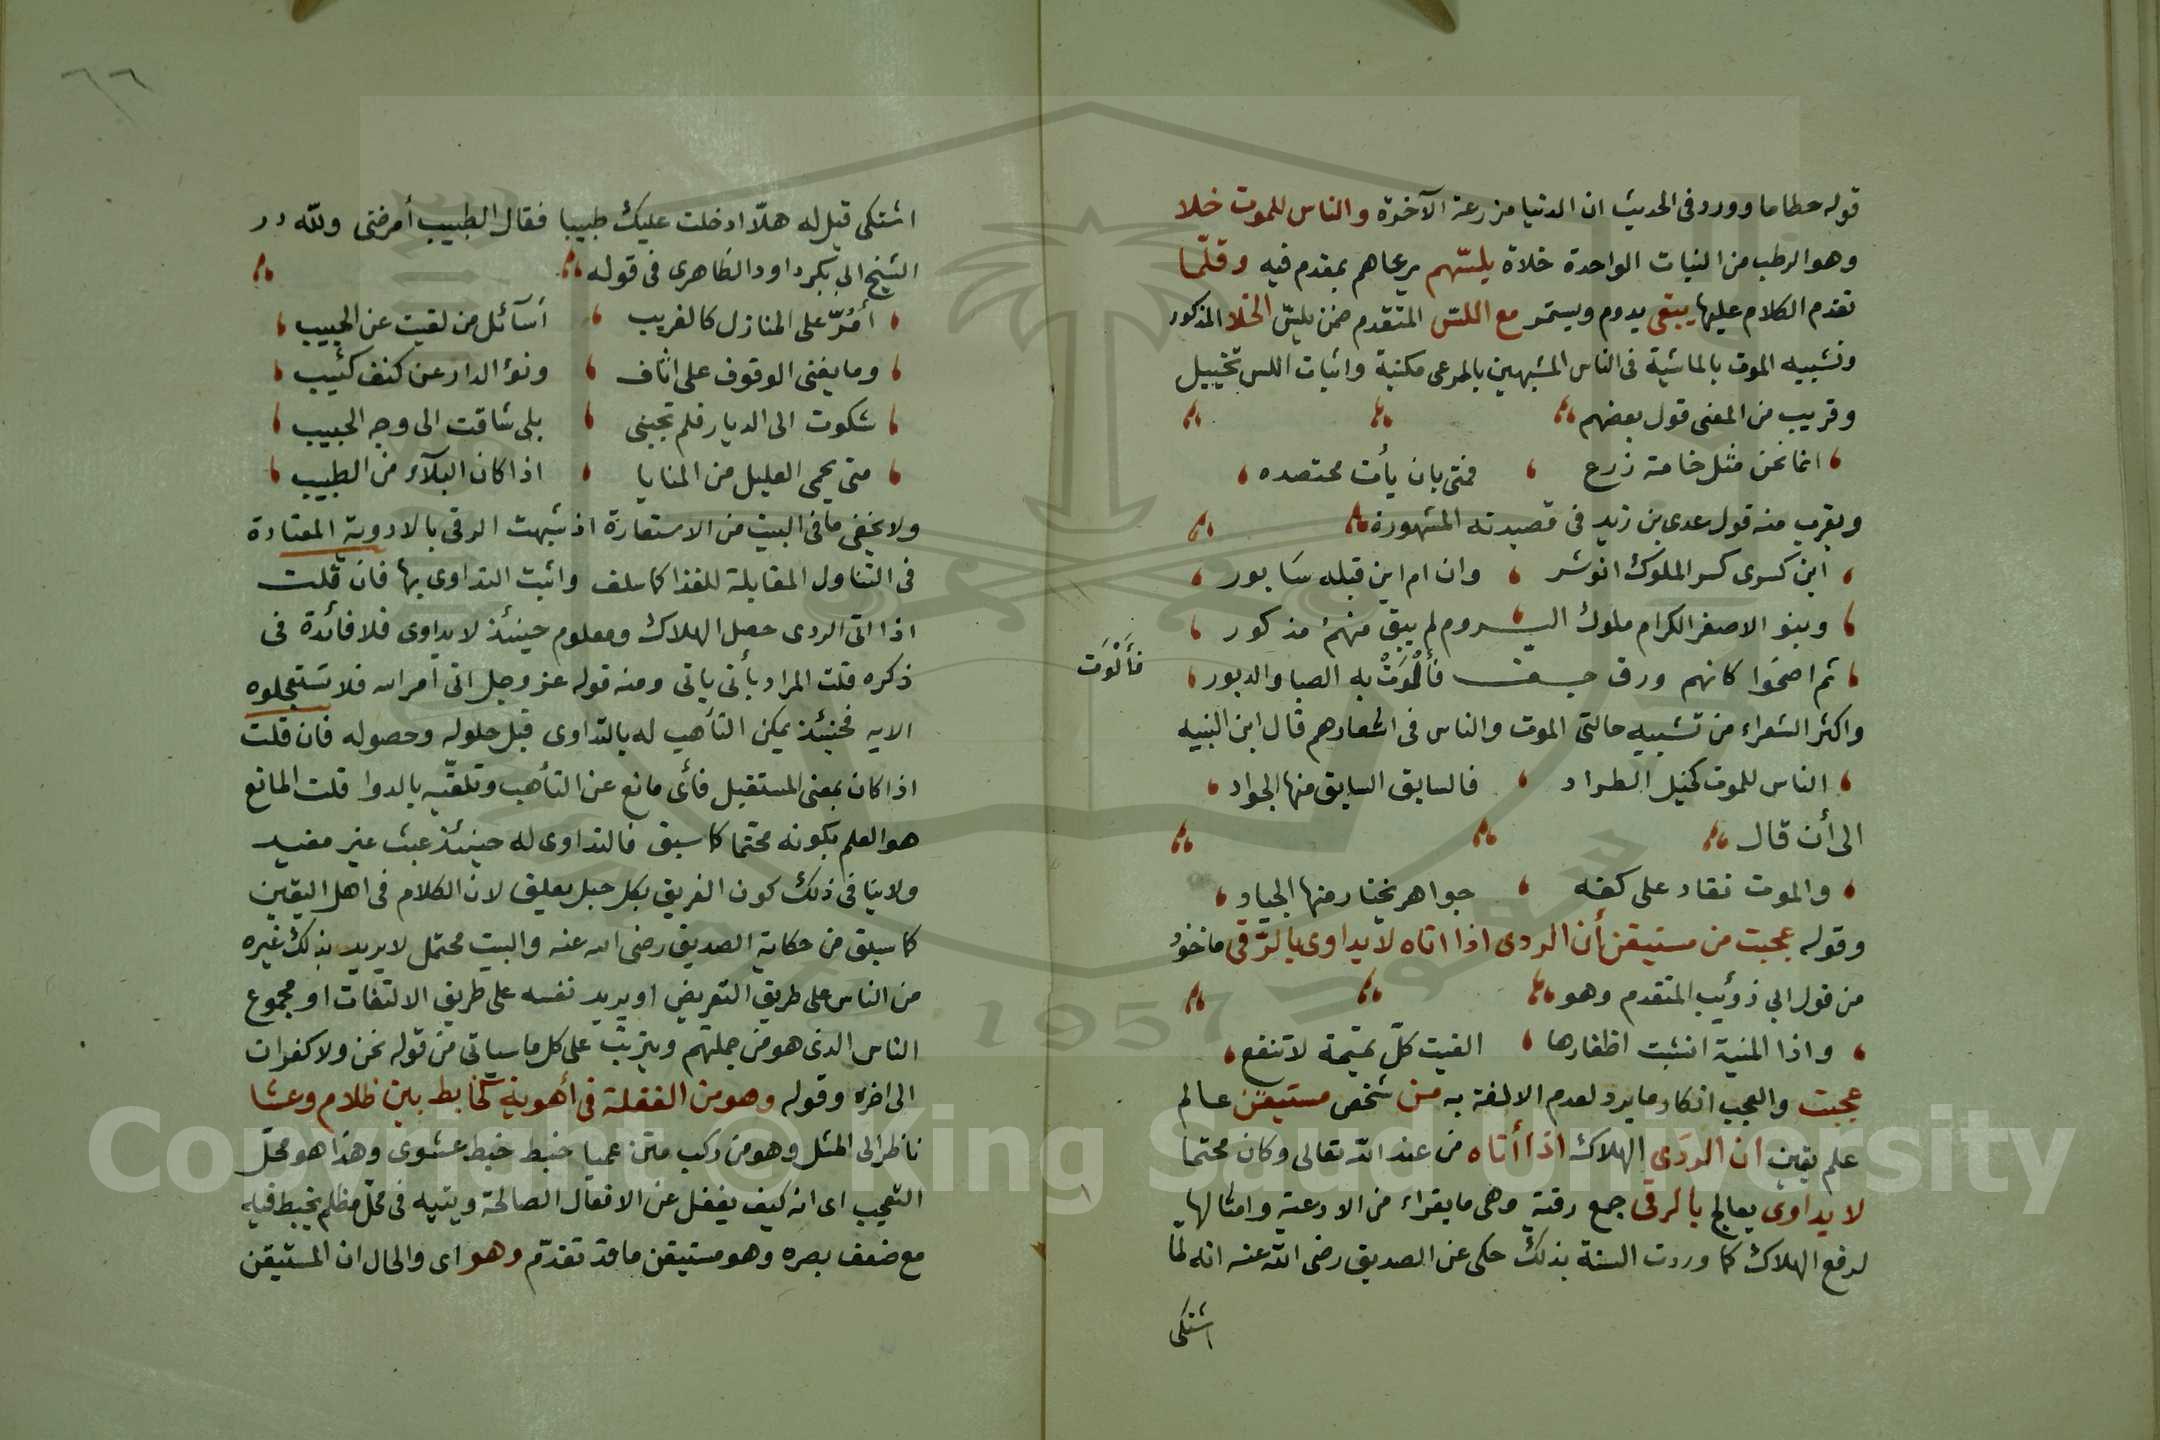 قوله حطاما وورد في الحديث ان الدنيا مزرعة الآخرة والناس للموت خلا
وهو الرطب من النبات الواحدة خلاة يلسّهم يرعاهم بمقدم فيه وقلّما
تقدم الكلام عليها يبقى يدوم ويستمر مع اللسّ المتقدم ضمن يلسّ الخلا المذكور
وتشبيه الموت بالماشية في الناس المشبهين بالمرعى مكنية واثبات اللس تخييل
وقريب من المعنى قول بعضهم
انما نحن مثل خامة زرع فمتى يان يأت محتصده
ويقرب منه قول عدي بن زيد في قصيدته المشهورة
اين كسرى كسر الملوك انوشر وان ام اين قبله سابور
وبنو الاصفر الكرام ملوك الـروم لم يبق منهم مذكور
ثم اضحوا كانهم ورق جـف فألوت به الصبا والدبور
فألوت
واكثر الشعراء من تشبيه حالتي الموت والناس في اشعارهم قال ابن النبيه
الناس للموت كخيل الطراد فالسابق السابق منها الجواد
الى أن قال
والموت نقاد على كفه جواهر يختار منها الجياد
وقوله عجبت من مستيقن أن الردى اذا اتاه لا يداوى بالرّقى ماخوذ
من قول ابي ذؤيب المتقدم وهو
واذا المنية انشبت اظفارها الفيت كلّ تميمة لا تنفع
عجبت والعجب انكار ما يرد لعدم الالفة به من شخص مستيقن عالم
علم يقين ان الردى الهلاك اذا أتاه من عند الله تعالى وكان محتما
لا يداوى يعالج بالرقى جمع رقية وهي ما يقراء من الادعية وامثالها
لدفع الهلاك كما وردت السنة بذلك حكي عن الصديق رضي الله عنه انه لمّا
اشتكى
٦٦
اشتكى قيل له هلّا ادخلت عليك طبيبا فقال الطبيب أمرضني ولله در
الشيخ ابي بكر داود الظاهري في قوله
أمُرّ على المنازل كالغريب أسآئل من لقيت عن الحبيب
وما يغني الوقوف على اثاف ونؤ الدار عن كنف كئيب
شكوت الى الديار فلم تجبني بلى شاقت الى وجه الحبيب
متى يحمى العليل من المنايا اذا كان البلآء من الطبيب
ولا يخفى ما في البيت من الاستعارة اذ شبهت الرقى بالادوية المعتادة
في التناول المقابلة للغذا كما سلف واثبت التداوى بها فان قلت
اذا اتى الردى حصل الهلاك ومعلوم حينئذ لا يداوى فلا فائدة في
ذكره قلت المراد بأتى ياتي ومنه قوله عز وجل اتى أمر الله فلا تستعجلوه
الايه فحينئذ يمكن التأهب له بالتداوى قبل حلوله وحصوله فان قلت
اذا كان بمعنى المستقبل فأي مانع عن التأهب وتلقّيه بالدوا قلت المانع
هو العلم بكونه محتما كما سبق فالتداوى له حينئذ عبث غير مفيد
ولا ينافي ذلك كون الغريق بكل حبل يعليق لان الكلام في اهل اليقين
كما سبق من حكاية الصديق رضي الله عنه والبيت محتمل لا يريد بذلك غيره
من الناس على طريق التعريض او يريد نفسه على طريق الالتفات او مجموع
الناس الذي هو من جملتهم ويترتب على كل ما سياتي من قوله نحن ولا كفران
الى اخره وقوله وهو من الغفلة في أهوية كخابط بين ظلام وعشا
ناظر الى المثل وهو من ركب متن عميا خبط خبط عشوى وهذا هو محلّ
التعجب اى انه كيف يغفل عن الافعال الصالحة ويتيه في محلّ مظلم يخبط فيه
مع ضعف بصره وهو مستيقن ما قد تقدّم وهو اى والحال ان المستيقن
Copyright © King Saud University
1957